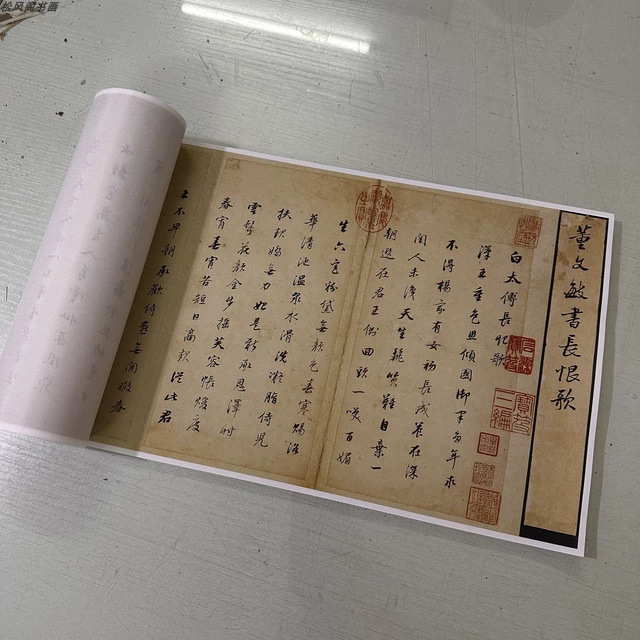 松风阁书画
董文敏書長恨歌
白太傅長恨歌
漢王重色思傾國御宇多年求
不得楊家有女初長成養在深
閨人未識天生麗質難自棄一
朝選在君王側回頭一笑百媚
生六宮粉黛無顏色春寒賜浴
華清池溫泉水滑洗凝脂侍兒
扶起嬌無力始是新承恩澤時
雲鬢花顏金步搖芙蓉帳暖度
春宵春宵苦短日高起從此君
王不早朝承歡侍宴無閒暇春
寶笈三編